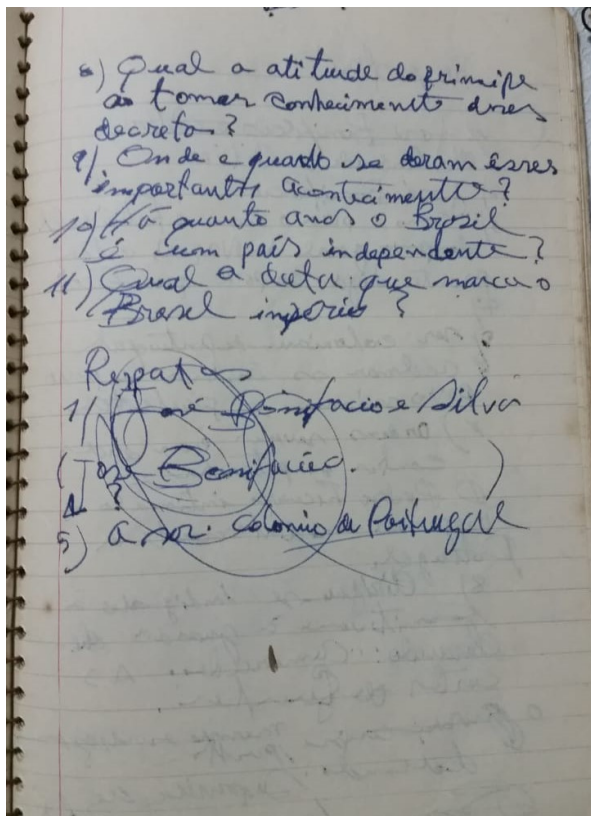 8) Qual a atitude do principe
ao tomar conhecimento desses
decretos?
9) Onde e quando se deram esses
importantes acontecimentos?
10) Há quanto anos o Brasil
é um país independente?
11) Qual a data que marca o
Brasil império?
Respostas
1) José Bonifacio e Silva
(José Bonifácio.)
?
5) a ser colonia de Portugal